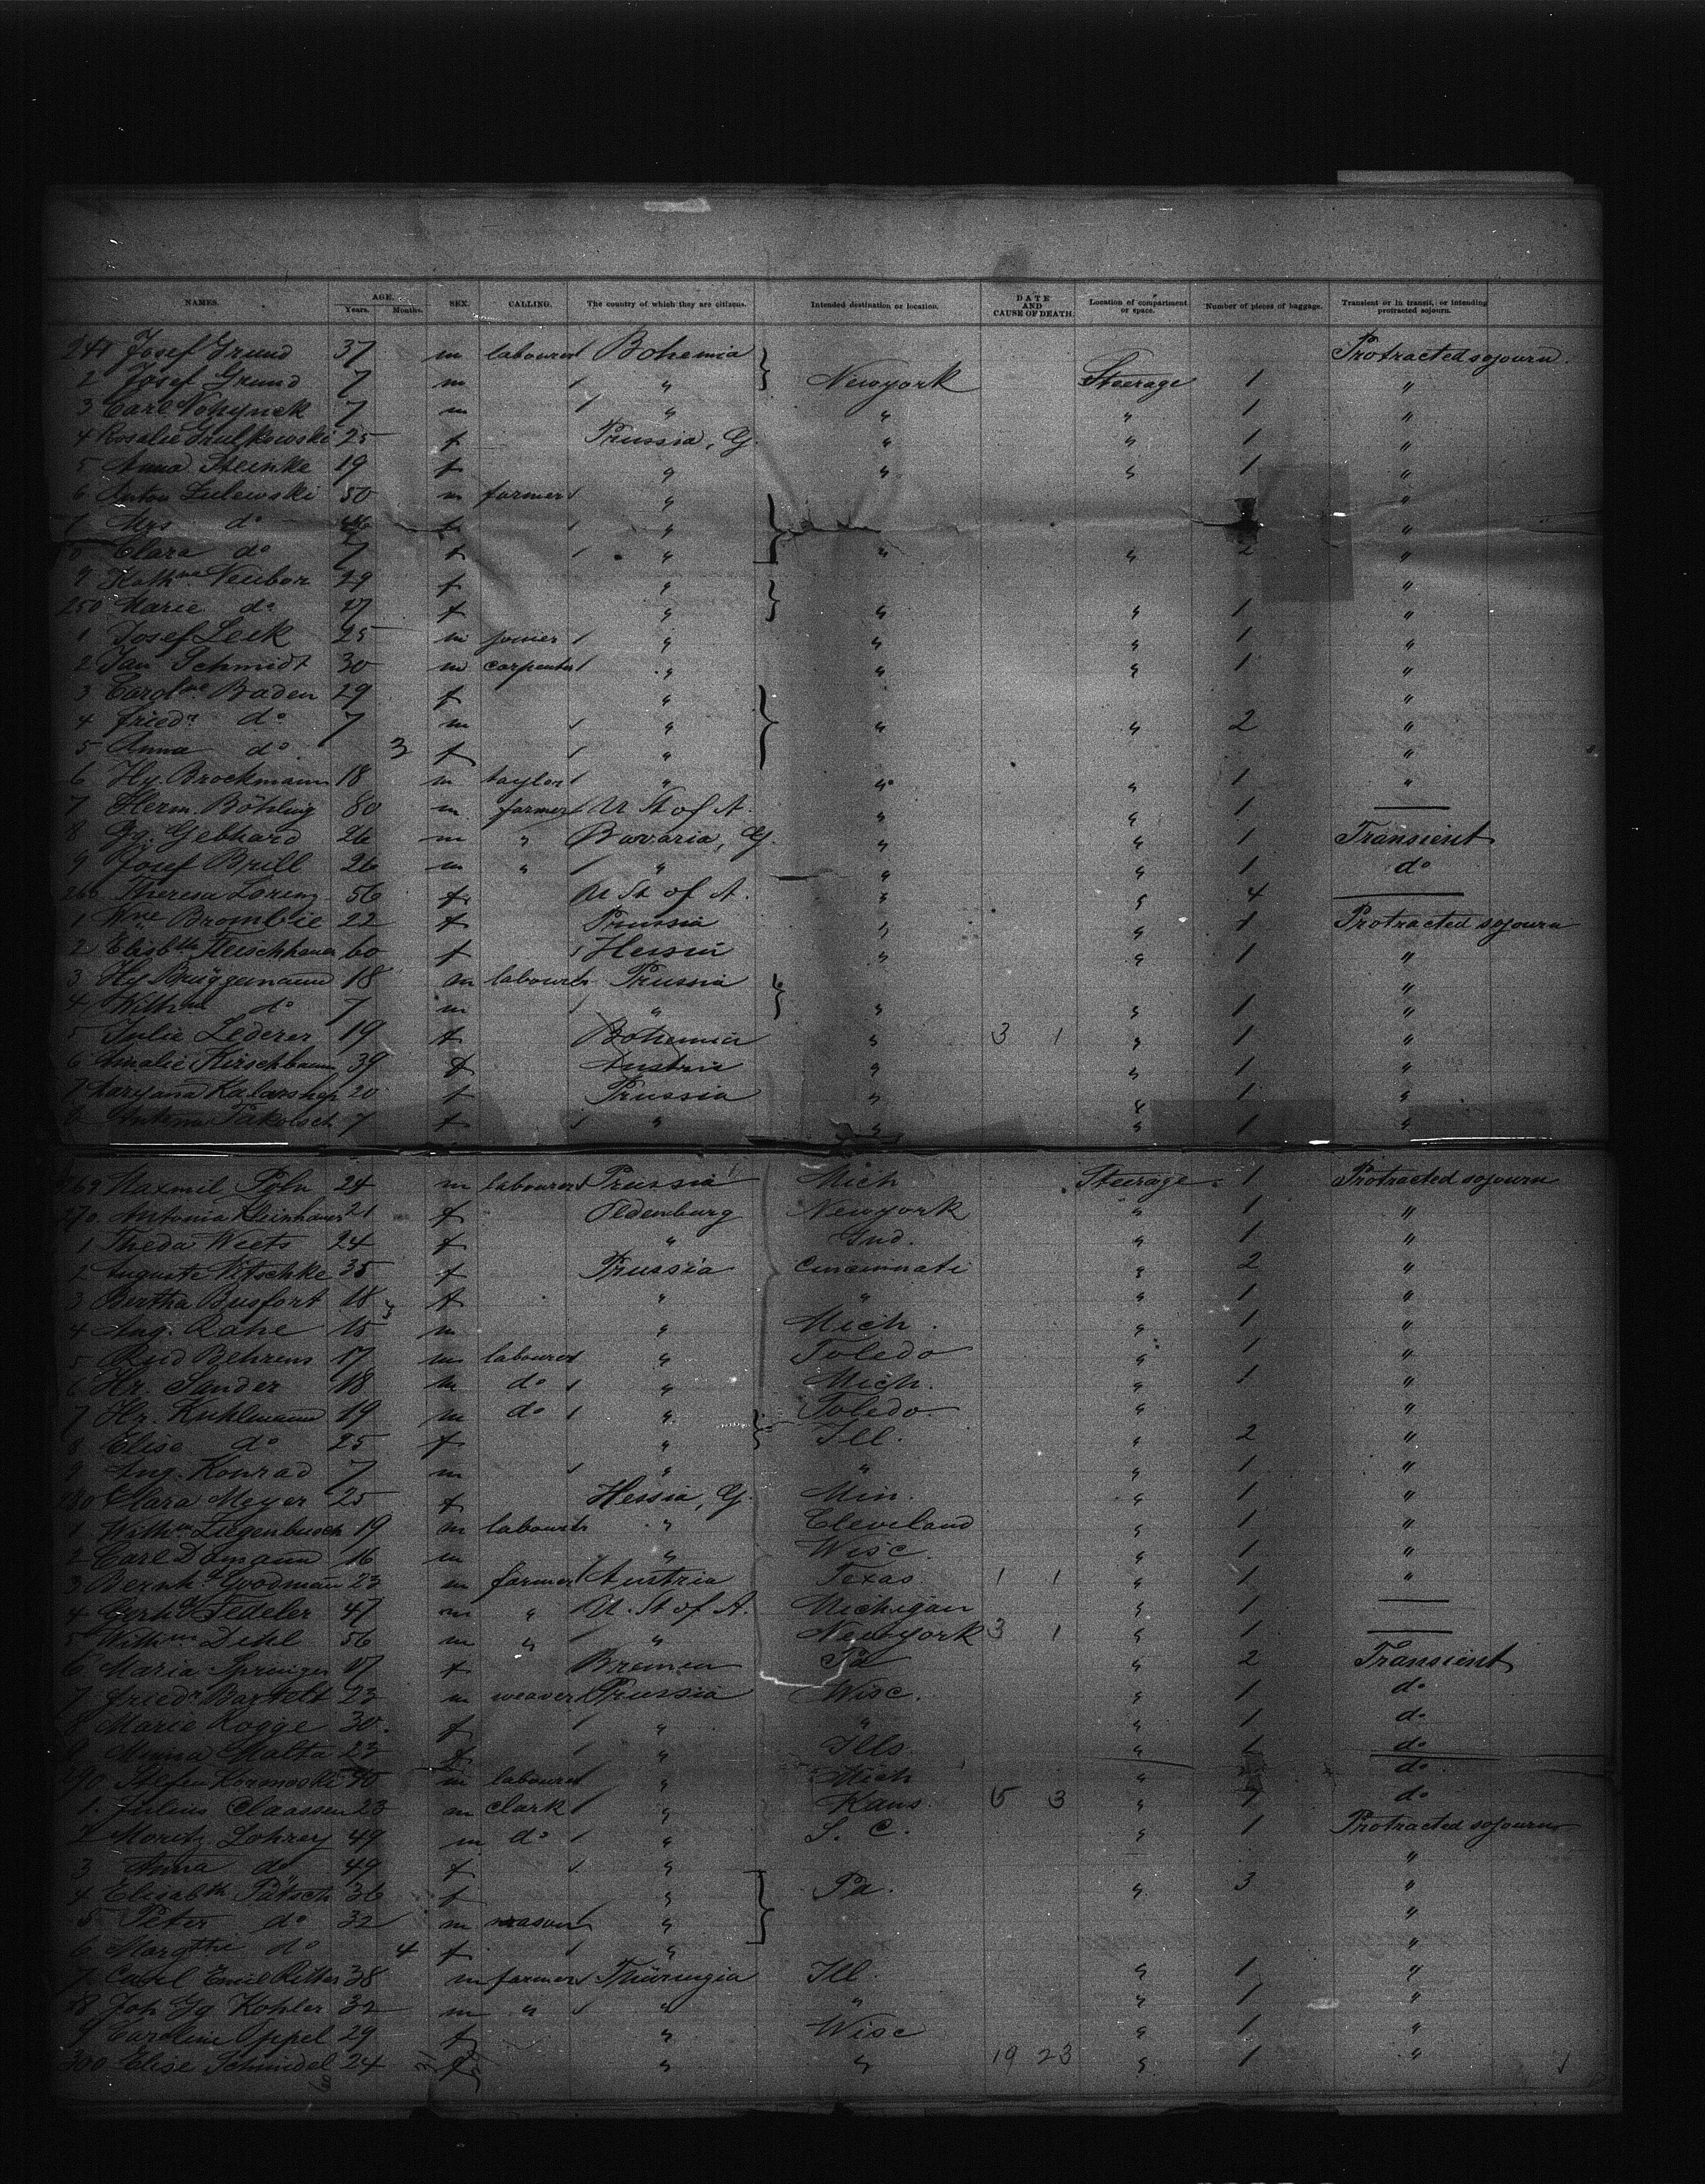 NAMES. AGE. Years. Months. SEX. CALLING. The country of which they are citizens. Intended destination or location. DATE AND CAUSE OF DEATH. Location of compartment or space. Number of pieces of baggage. Transient or in transit, or intending protracted sojourn.
241 Josef Grund 37 m labourer Bohemia Protracted sojourn
2 Josef Grund 7 m " Newyork Steerage 1 "
3 Carl 7 m " " " 1 "
4 Rosalie 25 f Prussia, G. " " 1 "
5 Anna Steinke 19 f " " " 1 "
6 Anton Lulewski 50 m farmer " "
7 Mrs do f " "
8 Clara do 7 f " " " 2 "
9 Kathne Neubor 29 f " "
250 Marie do 17 f " " " 1 "
1 Josef Leik 25 m joiner " " " 1 "
2 Jan Schmidt 30 m carpenter " " " 1 "
3 Carolne Baden 29 f " "
4 Friedr. do 7 m " " " 2 "
5 Anna do 3 f " "
6 Hy. Brockmann 18 m taylor " " " 1 "
7 Herm. Böhling 80 m farmer U St of A. " " 1 —
8 Gg. Gebhard 26 m " Bavaria, G. " " 1 Transient
9 Josef Brill 26 m " " " " 1 do
260 Theresa Lorenz 56 f U St of A. " " 4 —
1 Wne Brombie 22 f Prussia " " 1 Protracted sojourn
2 Elisbth Fleischhauer 60 f Hessia " " 1 "
3 Hy Brüggemann 18 m labourer Prussia "
4 Wilhm do 7 m " " " 1 "
5 Julie Lederer 19 f Bohemia " 3 1 " 1 "
6 Amalie Kirschbaum 39 f Austria " " 1 "
7 20 f Prussia " " 1 "
8 7 f " " " 1 "
269 Maxmil 24 m labourer Prussia Mich Steerage 1 Protracted sojourn
270. Antonia Kleinhaus 21 f Oldenburg Newyork " 1 "
1 Theda Wiets 24 f " Ind. " 1 "
2 Auguste Nitschke 35 f Prussia Cincinnati " 2 "
3 Bertha Busfort 18 f " " " 1 "
4 Aug. Rahe 15 m " Mich. " 1 "
5 Rud Behrens 17 m labourer " Toledo " 1 "
6 Hr. Sander 18 m do " Mich. " 1 "
7 Hr. Kuhlmann 19 m do " Toledo " "
8 Elise do 25 f " Ill. " 2 "
9 Aug. Konrad 7 m " " " 1 "
280 Clara Meyer 25 f Hessia, G. Min. " 1 "
1 Wilhm Ziegenbusch 19 m labourer " Cleveland " 1 "
2 Carl 16 m " Wisc. " 1 "
3 Bernhd. Goodman 23 m farmer Austria Texas 1 1 " 1 "
4 Gerhd Fedeler 47 m " U. St of A. Michigan " 1 —
5 Wilhm Diehl 56 m " " Newyork 3 1 " 1 —
6 Maria Springer 17 f Bremen Pa " 2 Transient
7 Friedr Bartelt 23 m weaver Prussia Wisc. " 1 do
8 Marie Rogge 30 f " " " 1 do
9 Minna Malta 23 f " Ills. " 1 do
290. Stefen 40 m labourer " Mich " do
1. Julius Claassen 23 m clark " Kans. 5 3 " do
2 Moritz Lohrey 49 m do " S. C. " 1 Protracted sojourn
3 Anna do 49 f " "
4 Elisabth Pätsch 36 f " Pa. " 3 "
5 Peter do 32 m mason " "
6 Margthe do 4 f " "
7 Carl Emil Ritter 38 m farmer Thüringia Ill. " 1 "
8 Joh Gg Kohler 32 m " " " " 1 "
9 Caroline Oppel 29 f " Wisc " 1 "
300 Elise Schmidel 24 f " " 19 23 " 1 "